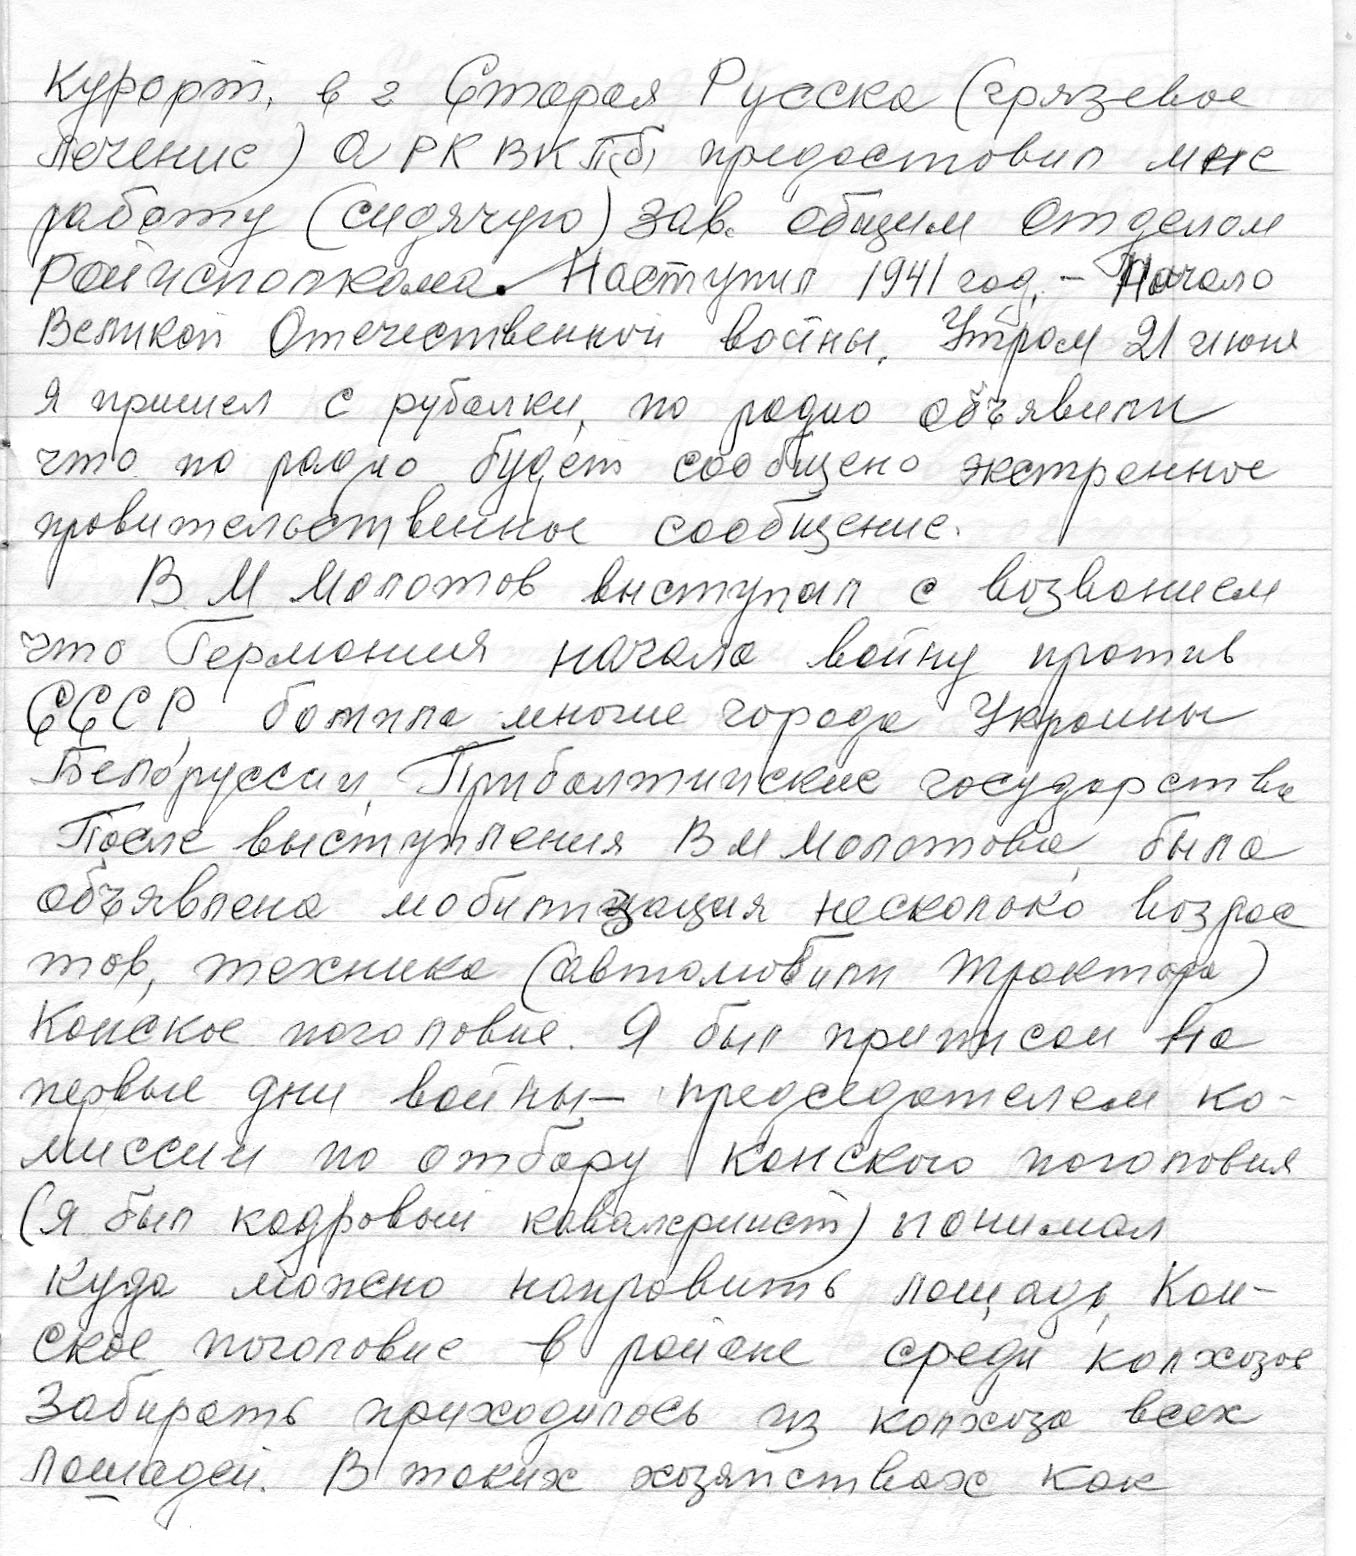 Курорт, в г Старая Русска (грязевое
лечение) а РК ВКП(б) предоставил мне
работу (сидячую) зав. общим отделом
Райисполкома. Наступил 1941 год. – Начало
Великой Отечественной войны. Утром 21 июня
я пришел с рубалки, по радио объявили
что по радио будет сообщено экстренное
правительственное сообщение.
В М Молотов выступал с воззванием
что Германия начала войну против
СССР, бомбила многие города Украины
Белоруссии, Прибалтийские государства
После выступления В М Молотова, была
объявлена мобилизация несколько возрас
тов, техника (автомобили трактора)
Конское поголовье. Я был приписан на
первые дни войны – председателем ко-
миссии по отбору конского поголовия
(я был кадровый кавалериист) понимал
куда можно направить лощадь, Кон-
ское поголовие в районе среди колхозов
Забирать приходилось из колхоза всех
лошадей. В таких хозяйствах как